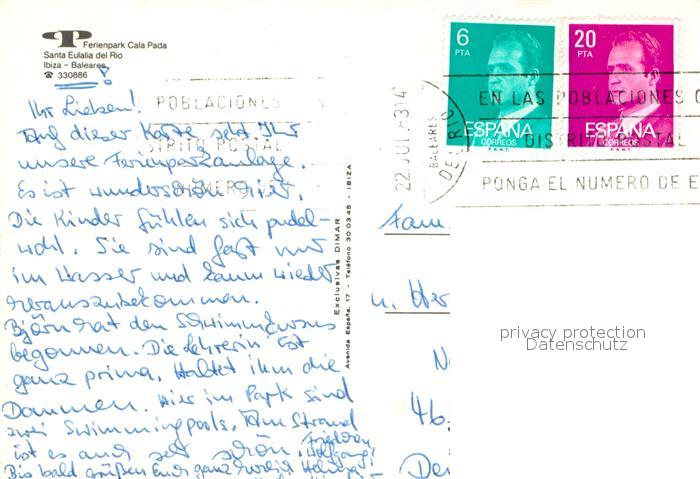 Ferienpark Cala Pada
Santa Eulalia del Rio
Ibiza - Baleares
☎ 330886 !
Ihr Lieben!
Auf dieser Karte seht Ihr
unsere Ferienparkanlage.
Es ist wunderschön hier.
Die Kinder fühlen sich pudel-
wohl. Sie sind fast nur
im Wasser und kaum wieder
rauszubekommen.
Björn hat den Schwimmkurs
begonnen. Die Lehrerin ist
ganz prima. Haltet ihm die
Daumen. Hier im Park sind
zwei Swimmingpools. Am Strand
ist es auch sehr schön.
Bis bald grüßen Euch ganz
Wolfgang
Exclusivas DIMAR
Avenida España, 17 - Teléfono 30 03 45 - IBIZA
6
PTA
ESPAÑA
CORREOS
F.N.M.T.
20
PTA
ESPAÑA
CORREOS
F.N.M.T.
POBLACIONES
DISTRITO POSTAL
NUMERO
22 JUL
BALEARES
DEL RIO
EN LAS POBLACIONES C
DISTRITO POSTAL
PONGA EL NUMERO DE E
Fam
u. Her
46
privacy protection
Datenschutz